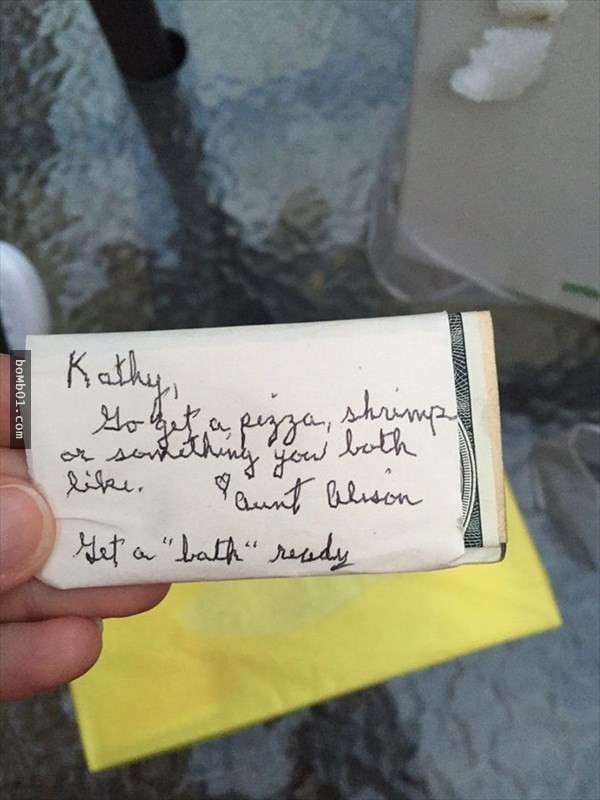 Kathy,
Go get a pizza, shrimp
or something you both
like.
♡ Aunt Alison
Get a "bath" ready
bomb01.com